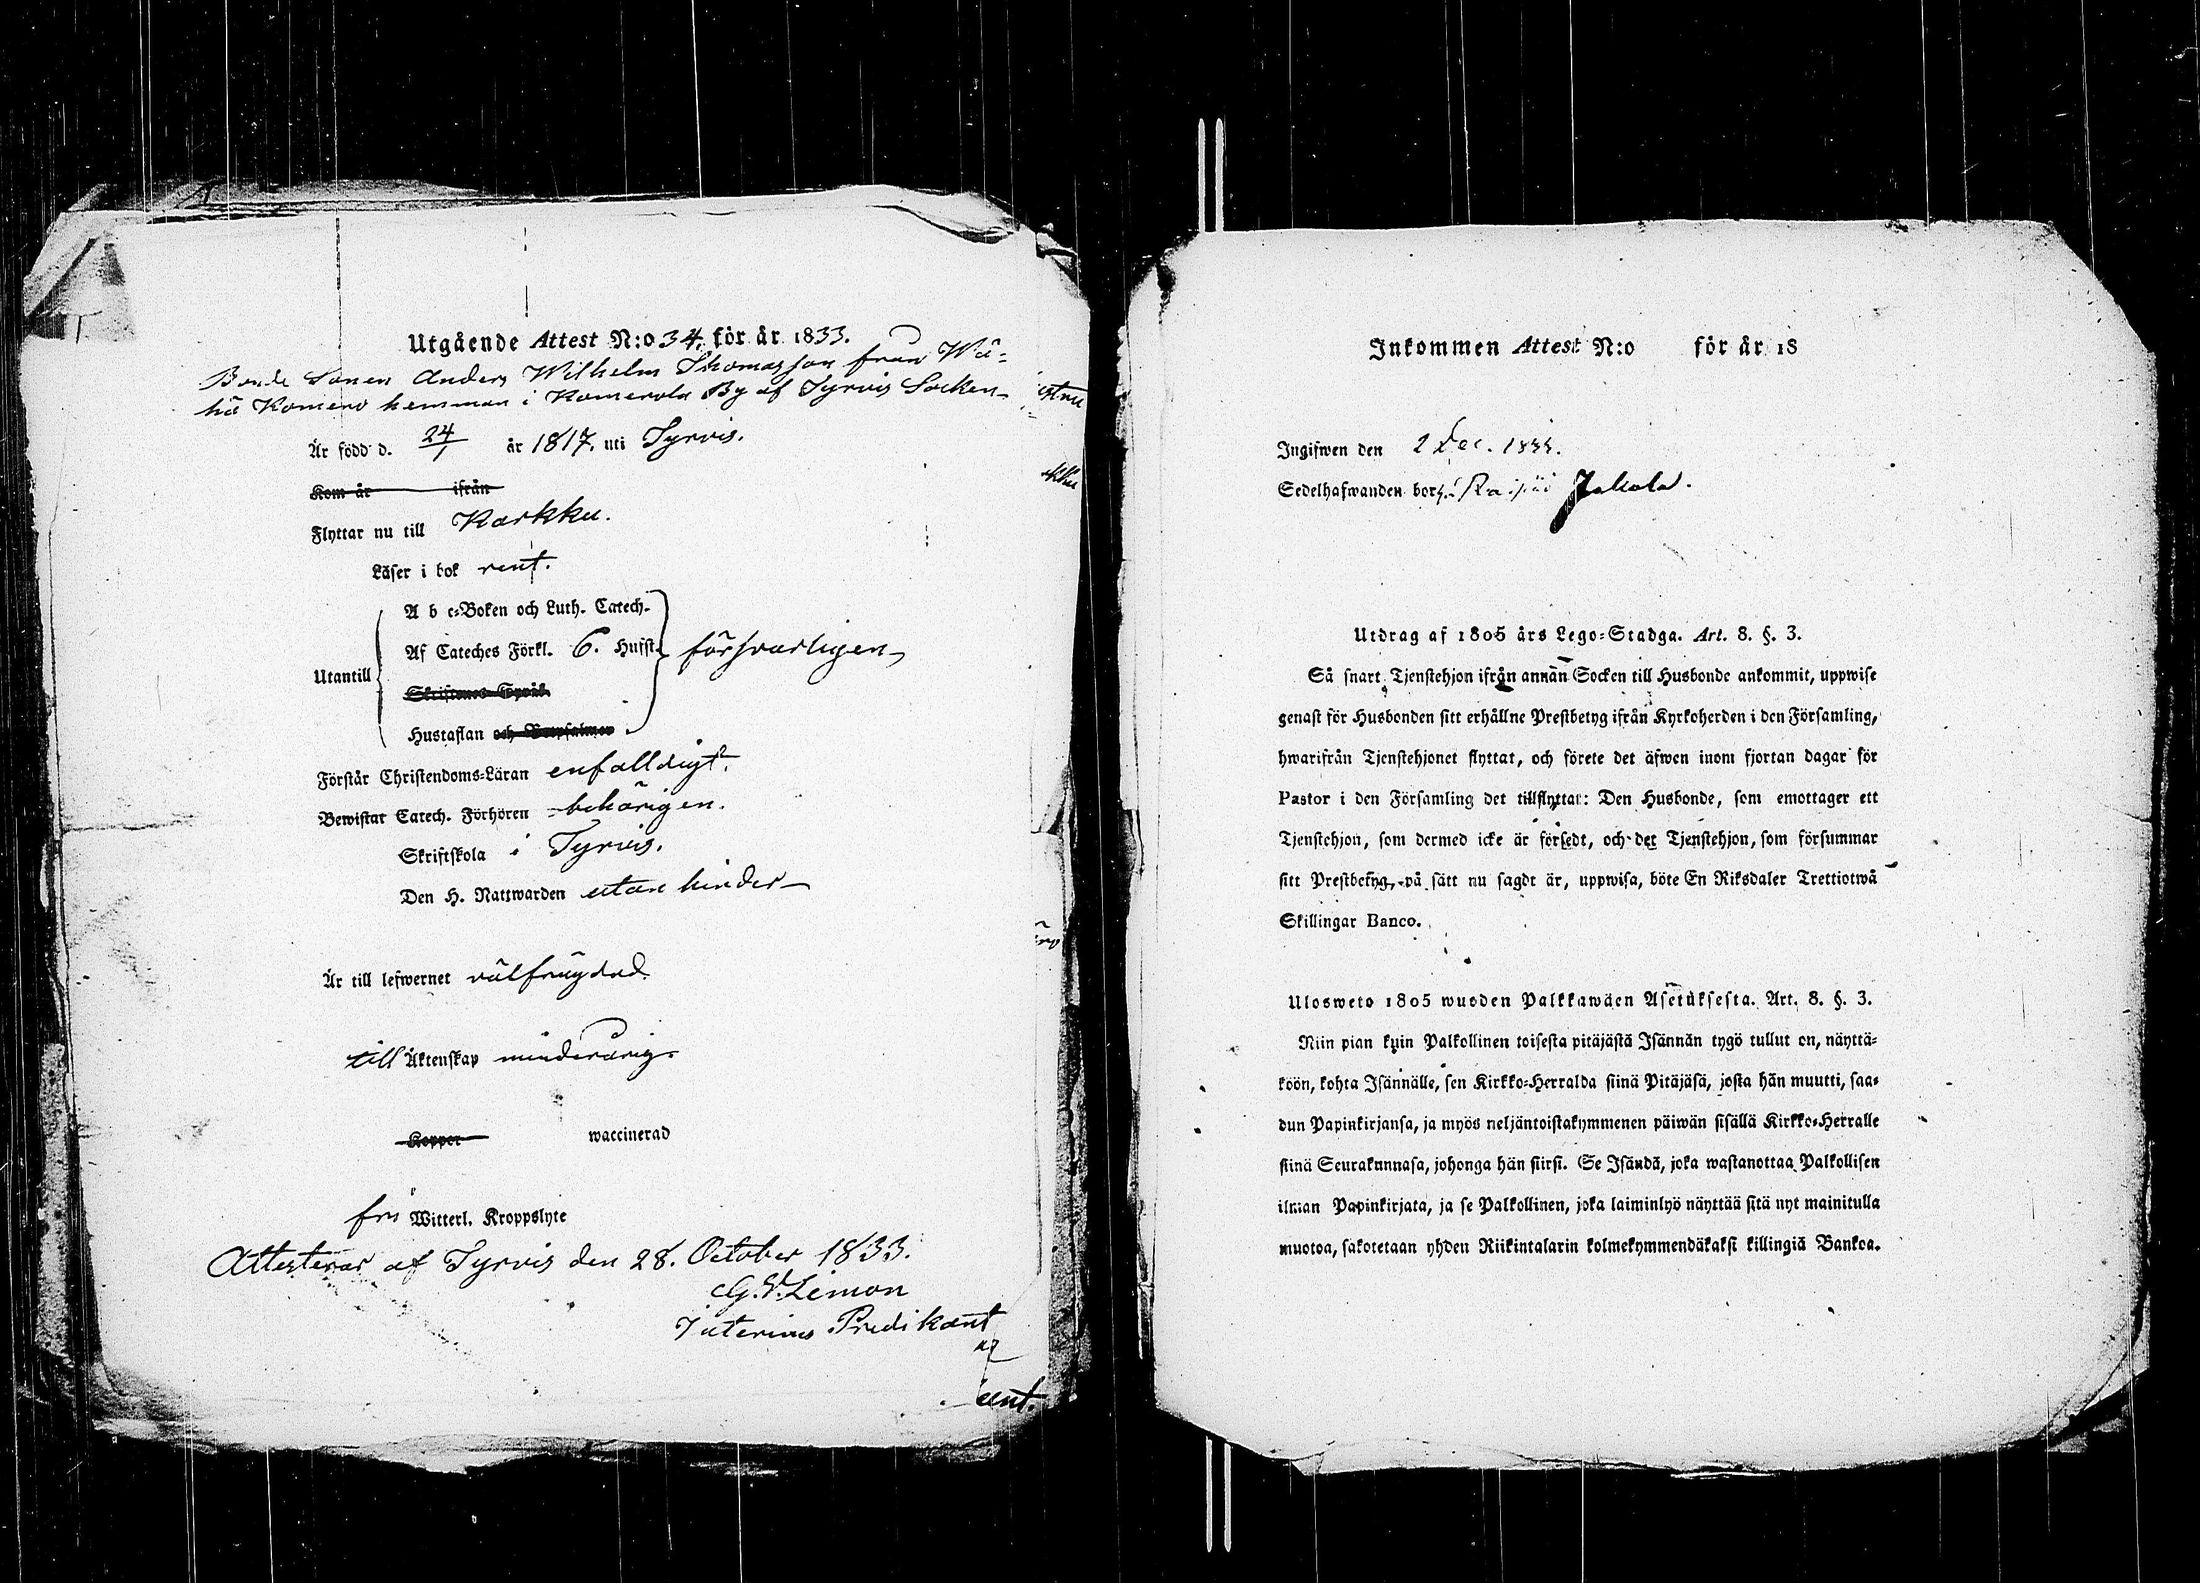 Utgående Attest N:o 34. för år 1833.
Bonde Sonen Anders Wilhelm Thomasson från Wä-
hä Komero hemman i Komerola By af Tyrvis Socken
Är född d. 24/1 år 1817. uti Tyrvis.
Kom år ifrån
Flyttar nu till Karkku.
Läser i bok rent.
A b c-Boken och Luth. Catech.
Utantill Af Cateches Förkl. 6. Hufst. försvarligen
Skriftenes Språk
Hustaflan och Botpsalmer
Förstår Christendoms-Läran enfalldigt.
Bewistat Catech. Förhören behörigen.
Skriftskola i Tyrvis.
Den H. Nattwarden utan hinder
Är till lefwernet välfrägdad.
till Äktenskap minderårig
Koppor waccinerad
fri Witterl. Kroppslyte
Attesteras af Tyrvis den 28. October 1833.
G. Limon
Interims Predikant
Inkommen Attest N:o för år 18
Ingifwen den 2 Dec. 1833.
Sedelhafwanden bor Jakola.
Utdrag af 1805 års Lego-Stadga. Art. 8. §. 3.
Så snart Tjenstehjon ifrån annan Socken till Husbonde ankommit, uppwise
genast för Husbonden sitt erhållne Prestbetyg ifrån Kyrkoherden i den Församling,
hwarifrån Tjenstehjonet flyttat, och förete det äfwen inom fjortan dagar för
Pastor i den Församling det tillflyttat: Den Husbonde, som emottager ett
Tjenstehjon, som dermed icke är försedt, och det Tjenstehjon, som försummar
sitt Prestbetyg, på sätt nu sagdt är, uppwisa, böte En Riksdaler Trettiotwå
Skillingar Banco.
Ulosweto 1805 wuoden Palkkawäen Asetuksesta. Art. 8. §. 3.
Niin pian kuin Palkollinen toisesta pitäjästä Isännän tygö tullut on, näyttä-
köön, kohta Isännälle, sen Kirkko-Herralda siinä Pitäjäsä, josta hän muutti, saa-
dun Papinkirjansa, ja myös neljäntoistakymmenen päiwän sisällä Kirkko-Herralle
siinä Seurakunnasa, johonga hän siirsi. Se Isändä, joka wastanottaa Palkollisen
ilman Papinkirjata, ja se Palkollinen, joka laiminlyö näyttää sitä nyt mainitulla
muotoa, sakotetaan yhden Riikintalarin kolmekymmendäkaksi killingiä Bankoa.